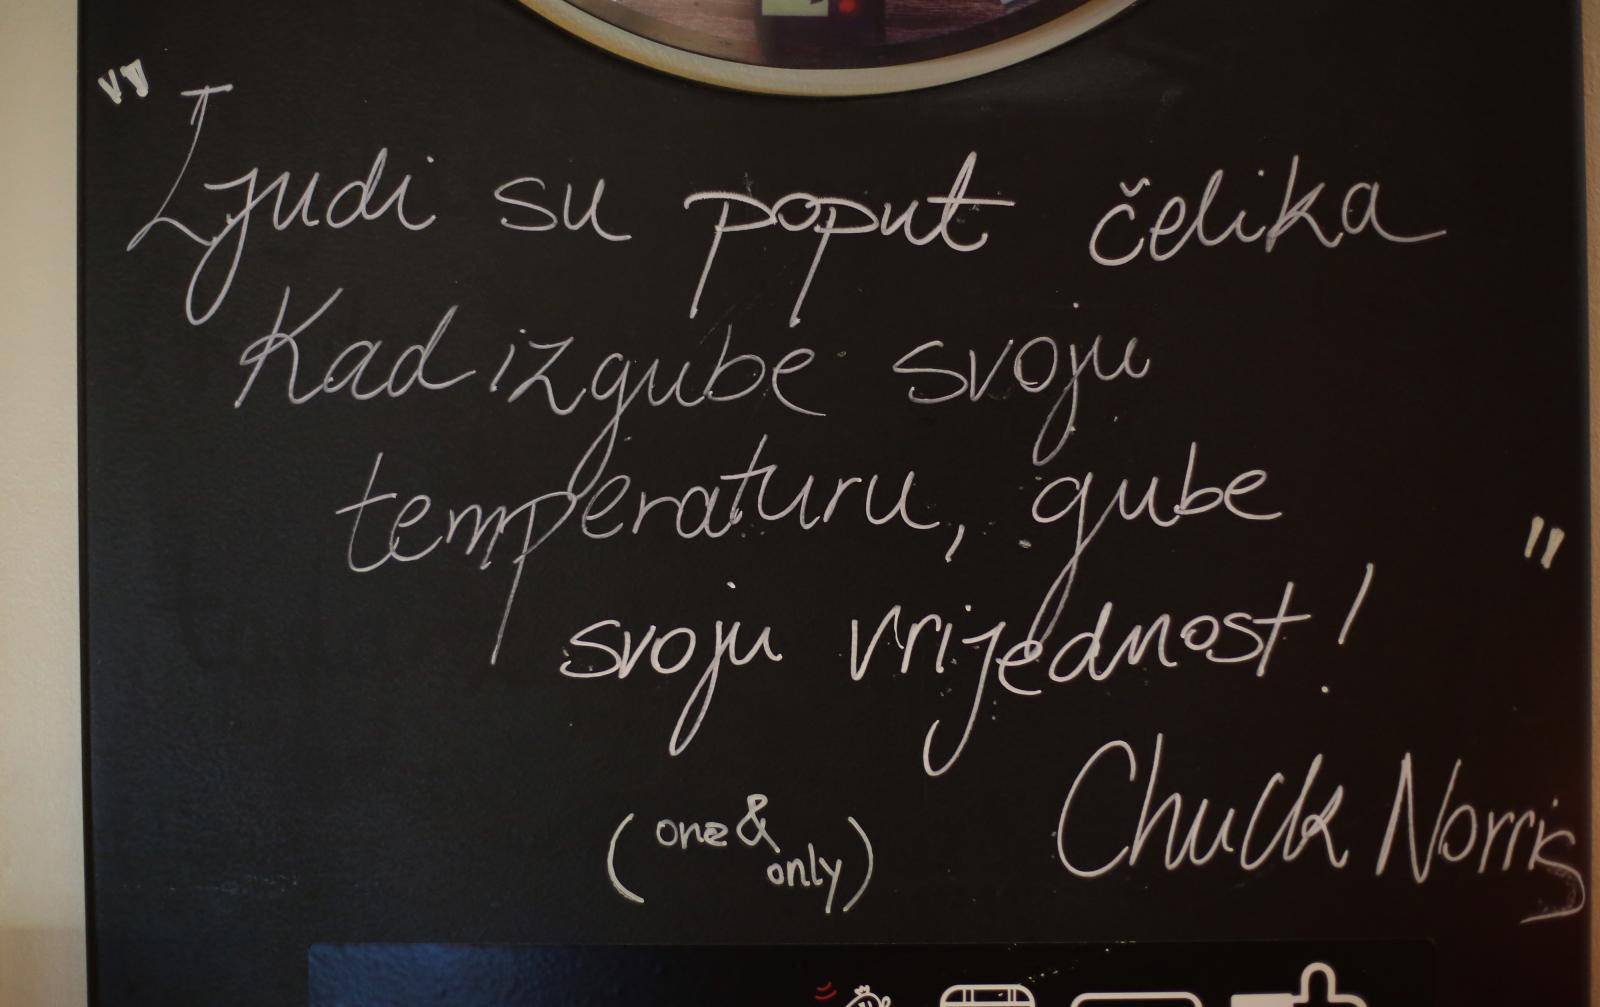 "Ljudi su poput čelika
Kad izgube svoju
temperaturu, gube
svoju vrijednost! "
Chuck Norris
(one &
only)